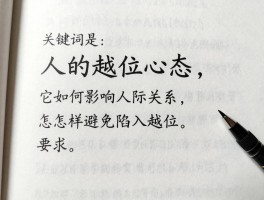 关键词是:
人的越位心态，
它如何影响人际关系，
怎怎样避免陷入越位。
要求。